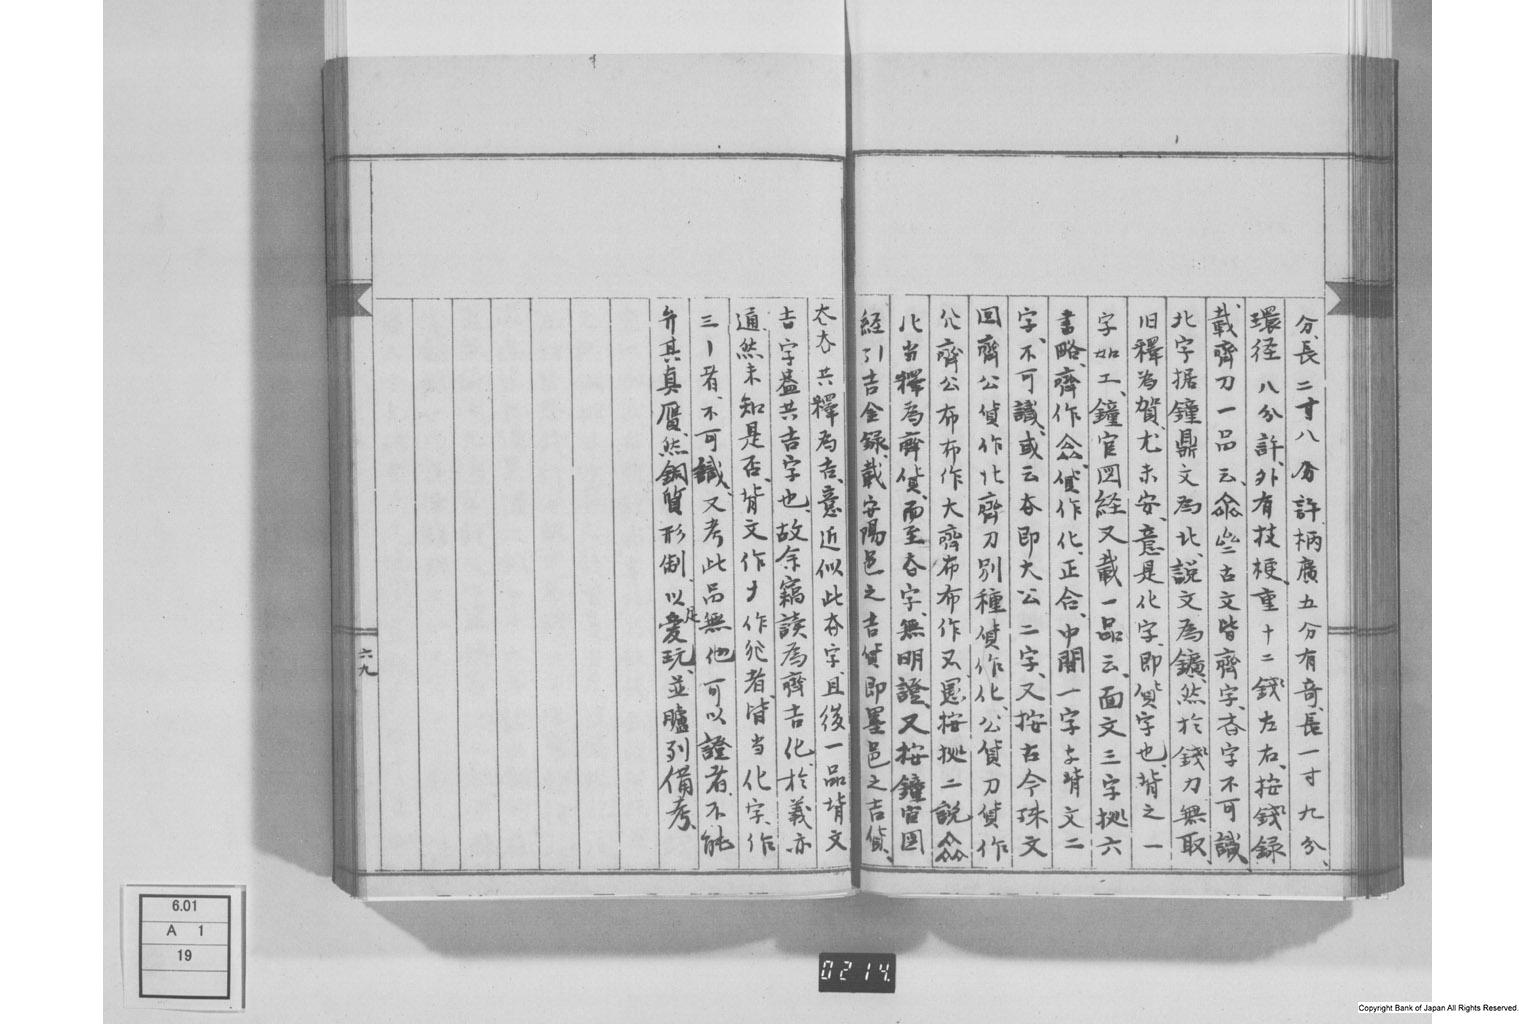 分、長二寸八分許、柄廣五分有奇、長一寸九分、
環径八分許、外有技梗、重十二錢左右、按錢録
載齊刀一品云、古文皆齊字、吞字不可識
北字据鐘鼎文為北、説文為鑛、然於錢刀無取、
旧釋為賀、尤未安、意是化字、即貨字也、背之一
字如工、鐘官図経又載一品云、面文三字拠六
書略、齊作 、貨作化、正合、中間一字 背文二
字、不可識、或云 即大公二字、又按古今珠文
図齊公貨作化齊刀別種貨作化、公貨刀貨作
化齊公布布作大齊布布作又、愚按拠二説
化当釋為齊貨、而至 字、無明證、又按鐘官図
経引吉金録、載安陽邑之吉貨即墨邑之吉貨、
共釋為吉、意近似此 字、且後一品背文
吉字蓋共吉字也、故余竊読為齊吉化、於義亦
通、然未知是否、背文作 作 者、皆当化字、作
三丨者、不可識、又考此品無他可以證者、不能
弁其真贋、然銅質形制、以足愛玩、並臚列備考、
六九
6.01
A 1
19
0214.
Copyright Bank of Japan All Rights Reserved.